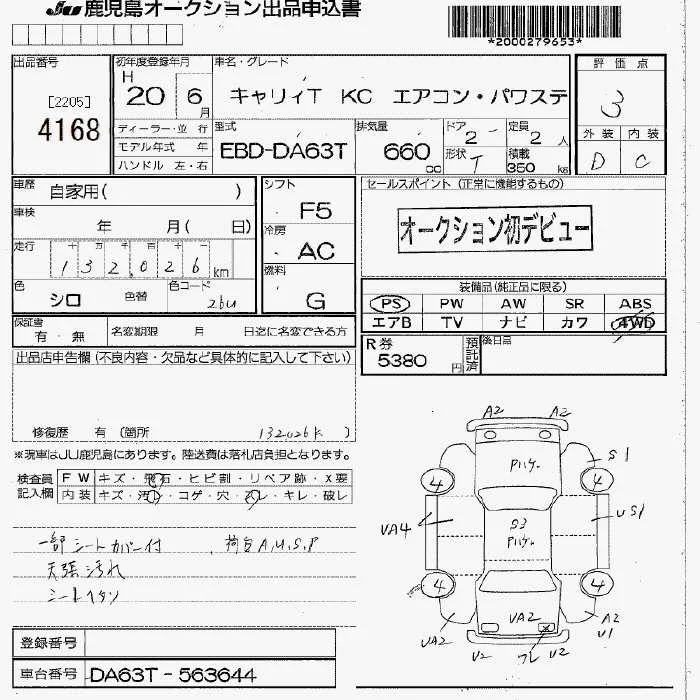 JU 鹿児島オークション出品申込書
*2000279653*
出品番号
[2205]
4168
初年度登録年月
H 20 6月
車名・グレード
キャリィT KC エアコン・パワステ
評価点
3
外装 内装
D C
ディーラー・並行
モデル年式 年
ハンドル 左・右
型式
EBD-DA63T
排気量
660 cc
ドア
2-
形状 T
定員
2 人
積載
350 kg
車歴
自家用( )
車検
年 月( 日)
走行
十 万 千 百 十 一
132,026 km
色
シロ
色替
色コード
26U
シフト
F5
冷房
AC
燃料
G
セールスポイント (正常に機能するもの)
オークション初デビュー
装備品(純正品に限る)
PS PW AW SR ABS
エアB TV ナビ カワ 4WD
保証書
有・無
名変期限 月 日迄に名変できる方
R券
5380 円
預託済
後日品
出品店申告欄 (不良内容・欠品など具体的に記入して下さい)
修復歴 有 (箇所 132026K )
※現車はJU鹿児島にあります。陸送費は落札店負担となります。
検査員記入欄
FW キズ・飛石・ヒビ割・リペア跡・X要
内装 キズ・汚れ・コゲ・穴・スレ・キレ・破レ
一部シートカバー付
荷台A,U,S,P
天張汚れ
シートヘタリ
A2 A2
Pハゲ
S1
4 4
UA4
S3
Pハゲ
US1
4 4
UA2
UA2
A2
U1
U2 ワレ U2
登録番号
車台番号 DA63T-563644